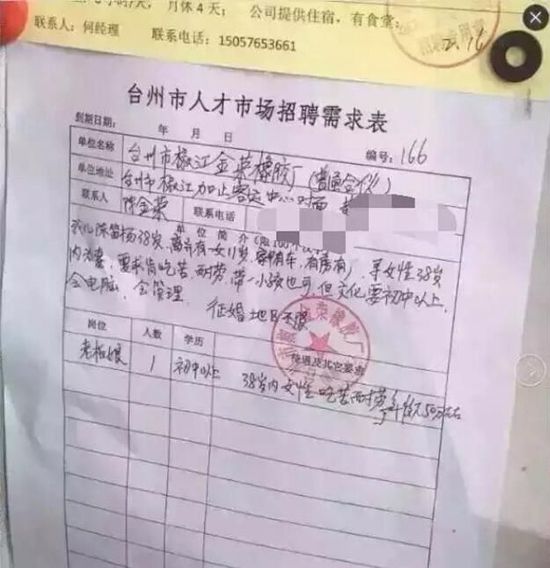 月休4天； 公司提供住宿，有食堂；
联系人：何经理 联系电话：15057653661
2.16
台州市人才市场招聘需求表
到期日期： 年 月 日 编号：166
单位名称 台州市椒江金荣橡胶厂（普通合伙）
单位地址 台州市椒江加止客运中心对面
联系人 陈金荣 联系电话
单位简介（限100个汉字
38岁，离异有一女11岁，有车，有房，寻女性38岁
内为妻，要求肯吃苦耐劳，带一小孩也可，但文化要初中以上，
会电脑，会管理。 征婚地区不限
岗位 人数 学历 待遇及其它要求
老板娘 1 初中以上 38岁内女性吃苦耐劳年薪50万左右